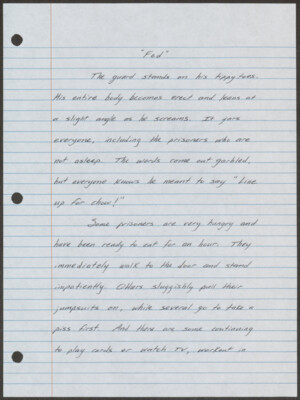 "Fed"
The guard stands on his tippytoes.
His entire body becomes erect and leans at
a slight angle as he screams. It jars
everyone, including the prisoners who are
not asleep. The words come out garbled,
but everyone knows he meant to say "Line
up for chow!"
Some prisoners are very hungry and
have been ready to eat for an hour. They
immediately walk to the door and stand
impatiently. Others sluggishly pull their
jumpsuits on, while several go to take a
piss first. And there are some continuing
to play cards or watch TV, workout in